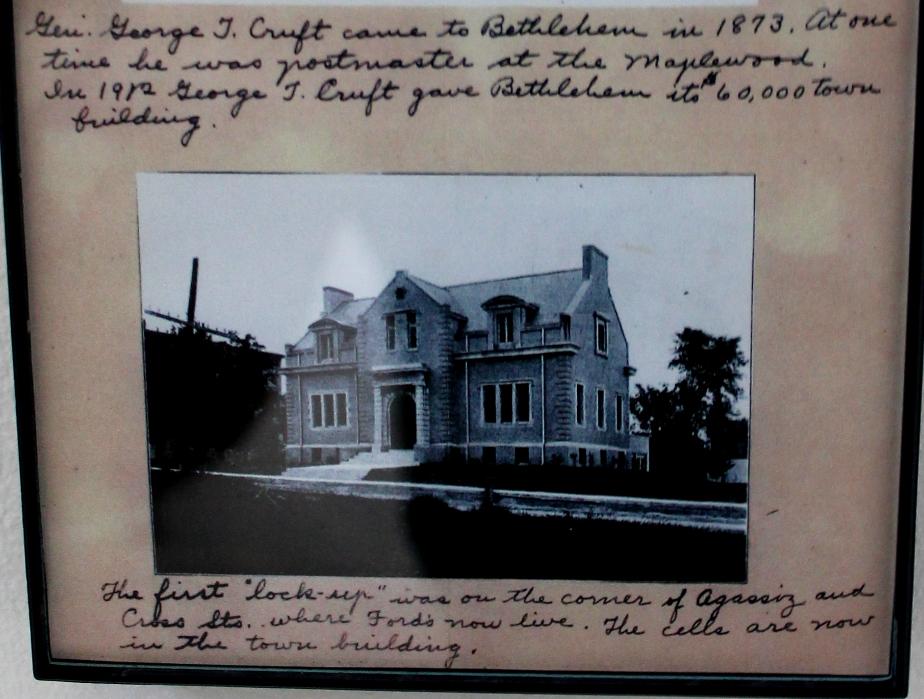 Gen. George T. Cruft came to Bethlehem in 1873. At one
time he was postmaster at the Maplewood.
In 1912 George T. Cruft gave Bethlehem its $60,000 town
building.
The first "lock-up" was on the corner of Agassiz and
Cross Sts. where Fords now live. The cells are now
in the town building.